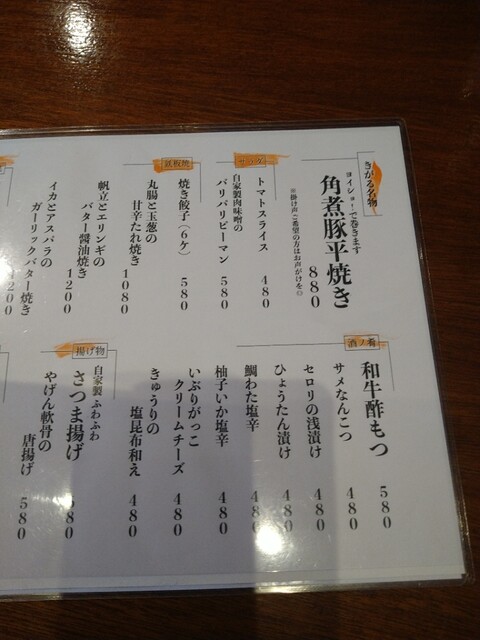 きがる名物
ヨイショ！で巻きます
角煮豚平焼き
880
※掛け声ご希望の方はお声がけを◎
トマトスライス 480
自家製肉味噌の
バリバリピーマン 580
鉄板焼
焼き餃子（6ケ） 580
丸腸と玉葱の
甘辛たれ焼き 1080
帆立とエリンギの
バター醤油焼き 1200
イカとアスパラの
ガーリックバター焼き
1200
酒ノ肴
和牛酢もつ 580
サメなんこつ 480
セロリの浅漬け 480
ひょうたん漬け 480
鯛わた塩辛
柚子いか塩辛 480
いぶりがっこ
クリームチーズ 480
きゅうりの
塩昆布和え 480
揚げ物
自家製ふわふわ
さつま揚げ
やげん軟骨の
唐揚げ 580